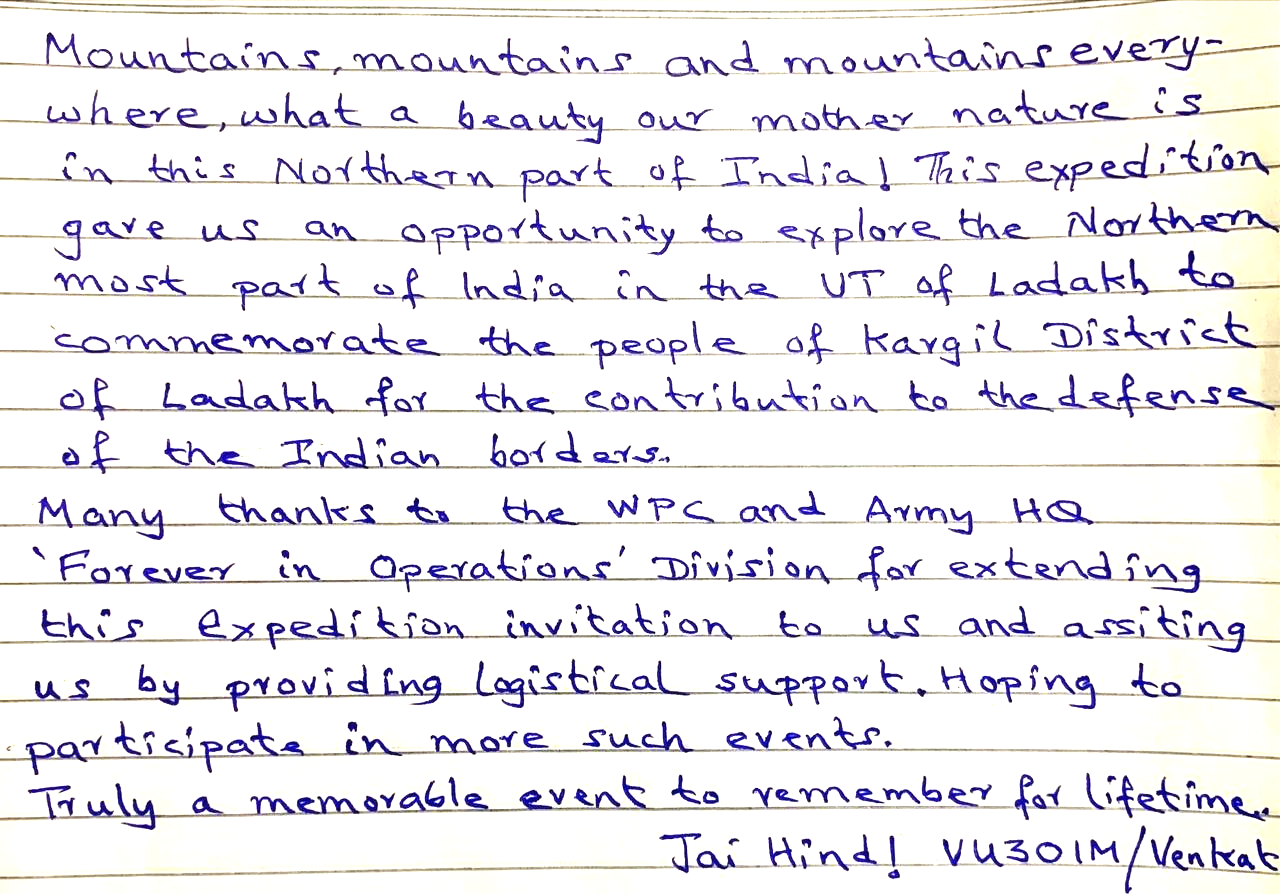 Mountains, mountains and mountains every-
where, what a beauty our mother nature is
in this Northern part of India! This expedition
gave us an opportunity to explore the Northern
most part of India in the UT of Ladakh to
commemorate the people of Kargil District
of Ladakh for the contribution to the defense
of the Indian borders.
Many thanks to the WPC and Army HQ
'Forever in Operations' Division for extending
this expedition invitation to us and assiting
us by providing logistical support. Hoping to
participate in more such events.
Truly a memorable event to remember for lifetime..
Jai Hind! VU3OIM/Venkat